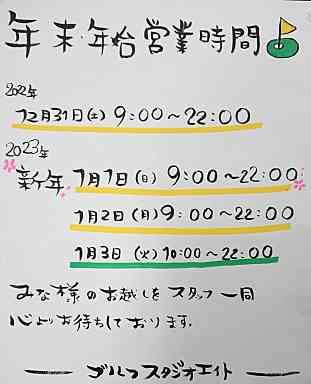 年末・年始営業時間
2022年
12月31日(土) 9:00〜22:00
2023年
新年 1月1日(日) 9:00〜22:00
1月2日(月) 9:00〜22:00
1月3日(火) 10:00〜22:00
みな様のお越しをスタッフ一同
心よりお待ちしております。
ゴルフスタジオエイト